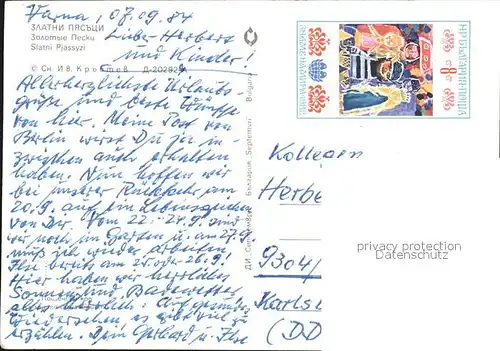 Varna, 07.09.84
ЗЛАТНИ ПЯСЪЦИ
Золотые Пески
Slatni Pjassyzi
Liebe Herbers
und Kinder!
© Сн. И.В. Кръстев Д-20292А
Allerherzlichste Urlaubs-
grüße und beste Wünsche
von hier. Meine Post von
Berlin wirst Du ja in-
zwischen auch erhalten
haben. Nun hoffen wir
bei unserer Rückkehr am
20.9. auf ein Lebenszeichen
von Dir. Vom 22.-24.9. sind
wir noch im Garten u. am 27.9.
muß ich wieder arbeiten
Ilse bereits am 25. oder 26.9!
Hier haben wir herrliches
Sonnen- und Badewetter
alles herrlich. Auf gesundes
Wiedersehen, es gibt viel zu
erzählen. Dein Gerhard u. Ilse
ДИ „Септември“ България "Septemvri" Bulgaria
НР БЪЛГАРИЯ ПОЩА
8
Kollegin
Herbe
9304
Karls
(DD
privacy protection
Datenschutz